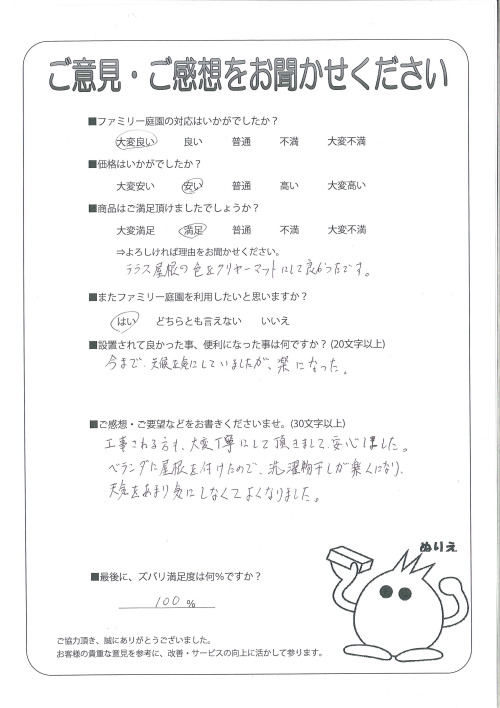 ご意見・ご感想をお聞かせください
■ファミリー庭園の対応はいかがでしたか？
大変良い 良い 普通 不満 大変不満
■価格はいかがでしたか？
大変安い 安い 普通 高い 大変高い
■商品はご満足頂けましたでしょうか？
大変満足 満足 普通 不満 大変不満
⇒よろしければ理由をお聞かせください。
テラス屋根の色をクリヤーマットにして良かったです。
■またファミリー庭園を利用したいと思いますか？
はい どちらとも言えない いいえ
■設置されて良かった事、便利になった事は何ですか？(20文字以上)
今まで、天候を気にしていましたが、楽になった。
■ご感想・ご要望などをお書きくださいませ。(30文字以上)
工事される方も、大変丁寧にして頂きまして、安心しました。
ベランダに屋根を付けたので、洗濯物干しが楽になり、
天気をあまり気にしなくてよくなりました。
ぬりえ
■最後に、ズバリ満足度は何％ですか？
100 %
ご協力頂き、誠にありがとうございました。
お客様の貴重な意見を参考に、改善・サービスの向上に活かして参ります。